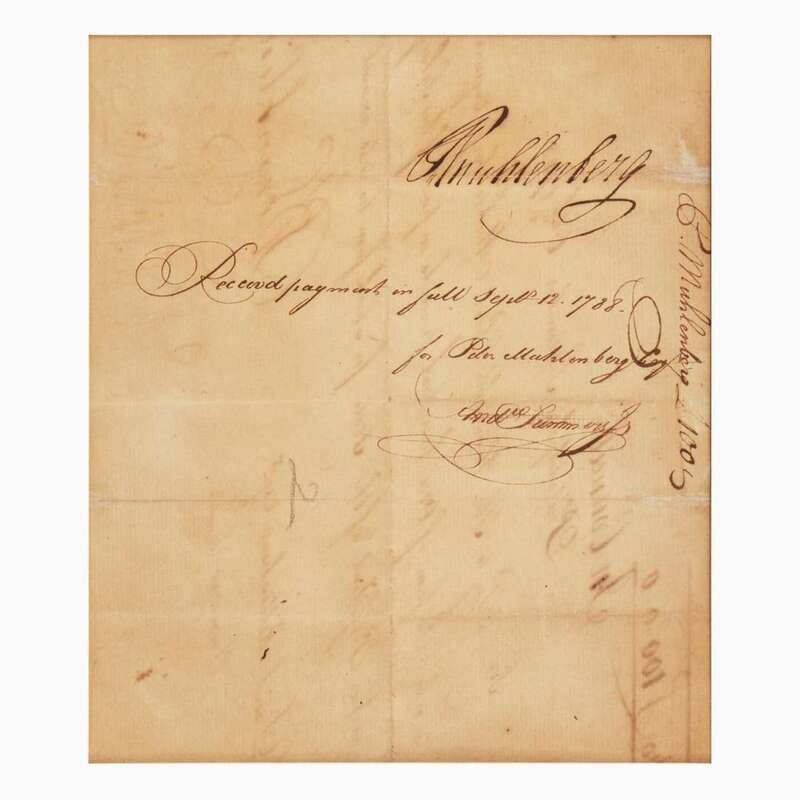 PMuhlenberg
Received payment in full Sept. 12. 1788.
for Peter Muhlenberg Esq
Andw Summers Jr
P. Muhlenberg £ 100